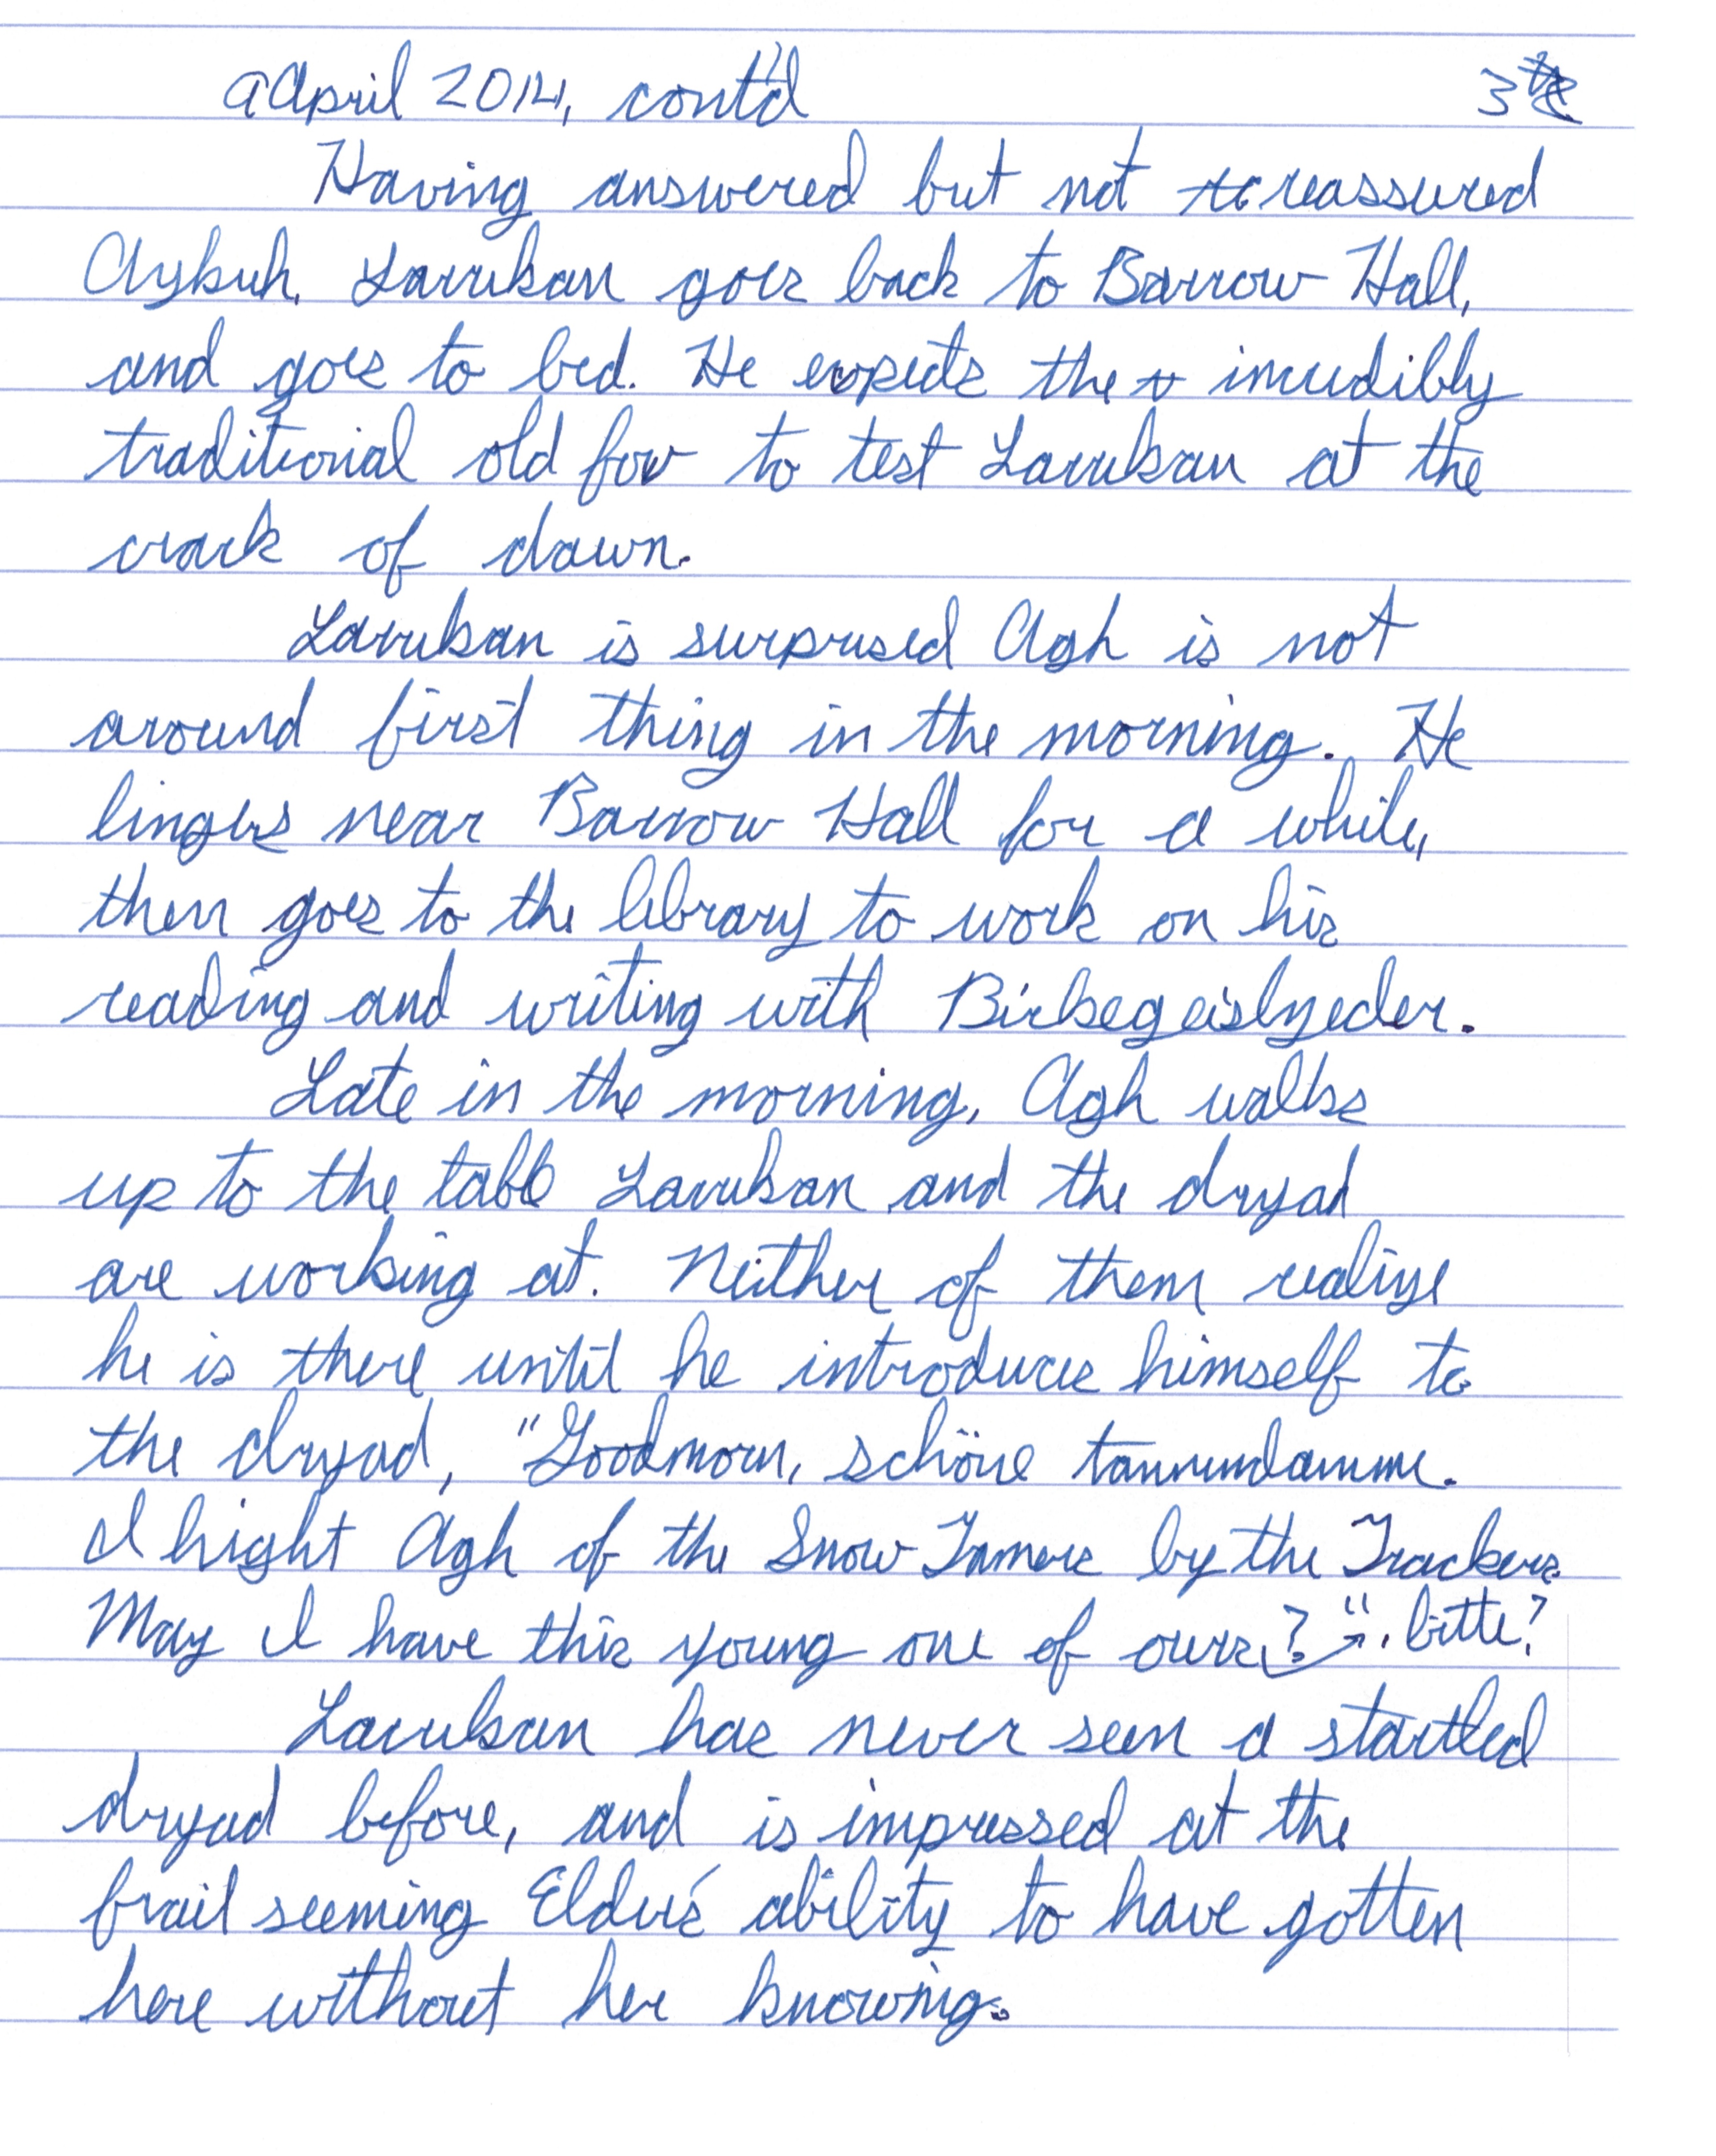 9 April 2014, cont'd 3
Having answered but not reassured
Aykuh, Larukan goes back to Barrow Hall,
and goes to bed. He expects the incredibly
traditional old fox to test Larukan at the
crack of dawn.
Larukan is surprised Agh is not
around first thing in the morning. He
lingers near Barrow Hall for a while,
then goes to the library to work on his
reading and writing with Birkegeislyeder.
Late in the morning, Agh walks
up to the table Larukan and the dryad
are working at. Neither of them realize
he is there until he introduces himself to
the dryad, "Goodmorn, schöne tannendamme.
I hight Agh of the Snow Tamers by the Trackers.
May I have this young one of ours, bitte?"
Larukan has never seen a startled
dryad before, and is impressed at the
frail seeming Elder's ability to have gotten
here without her knowing.